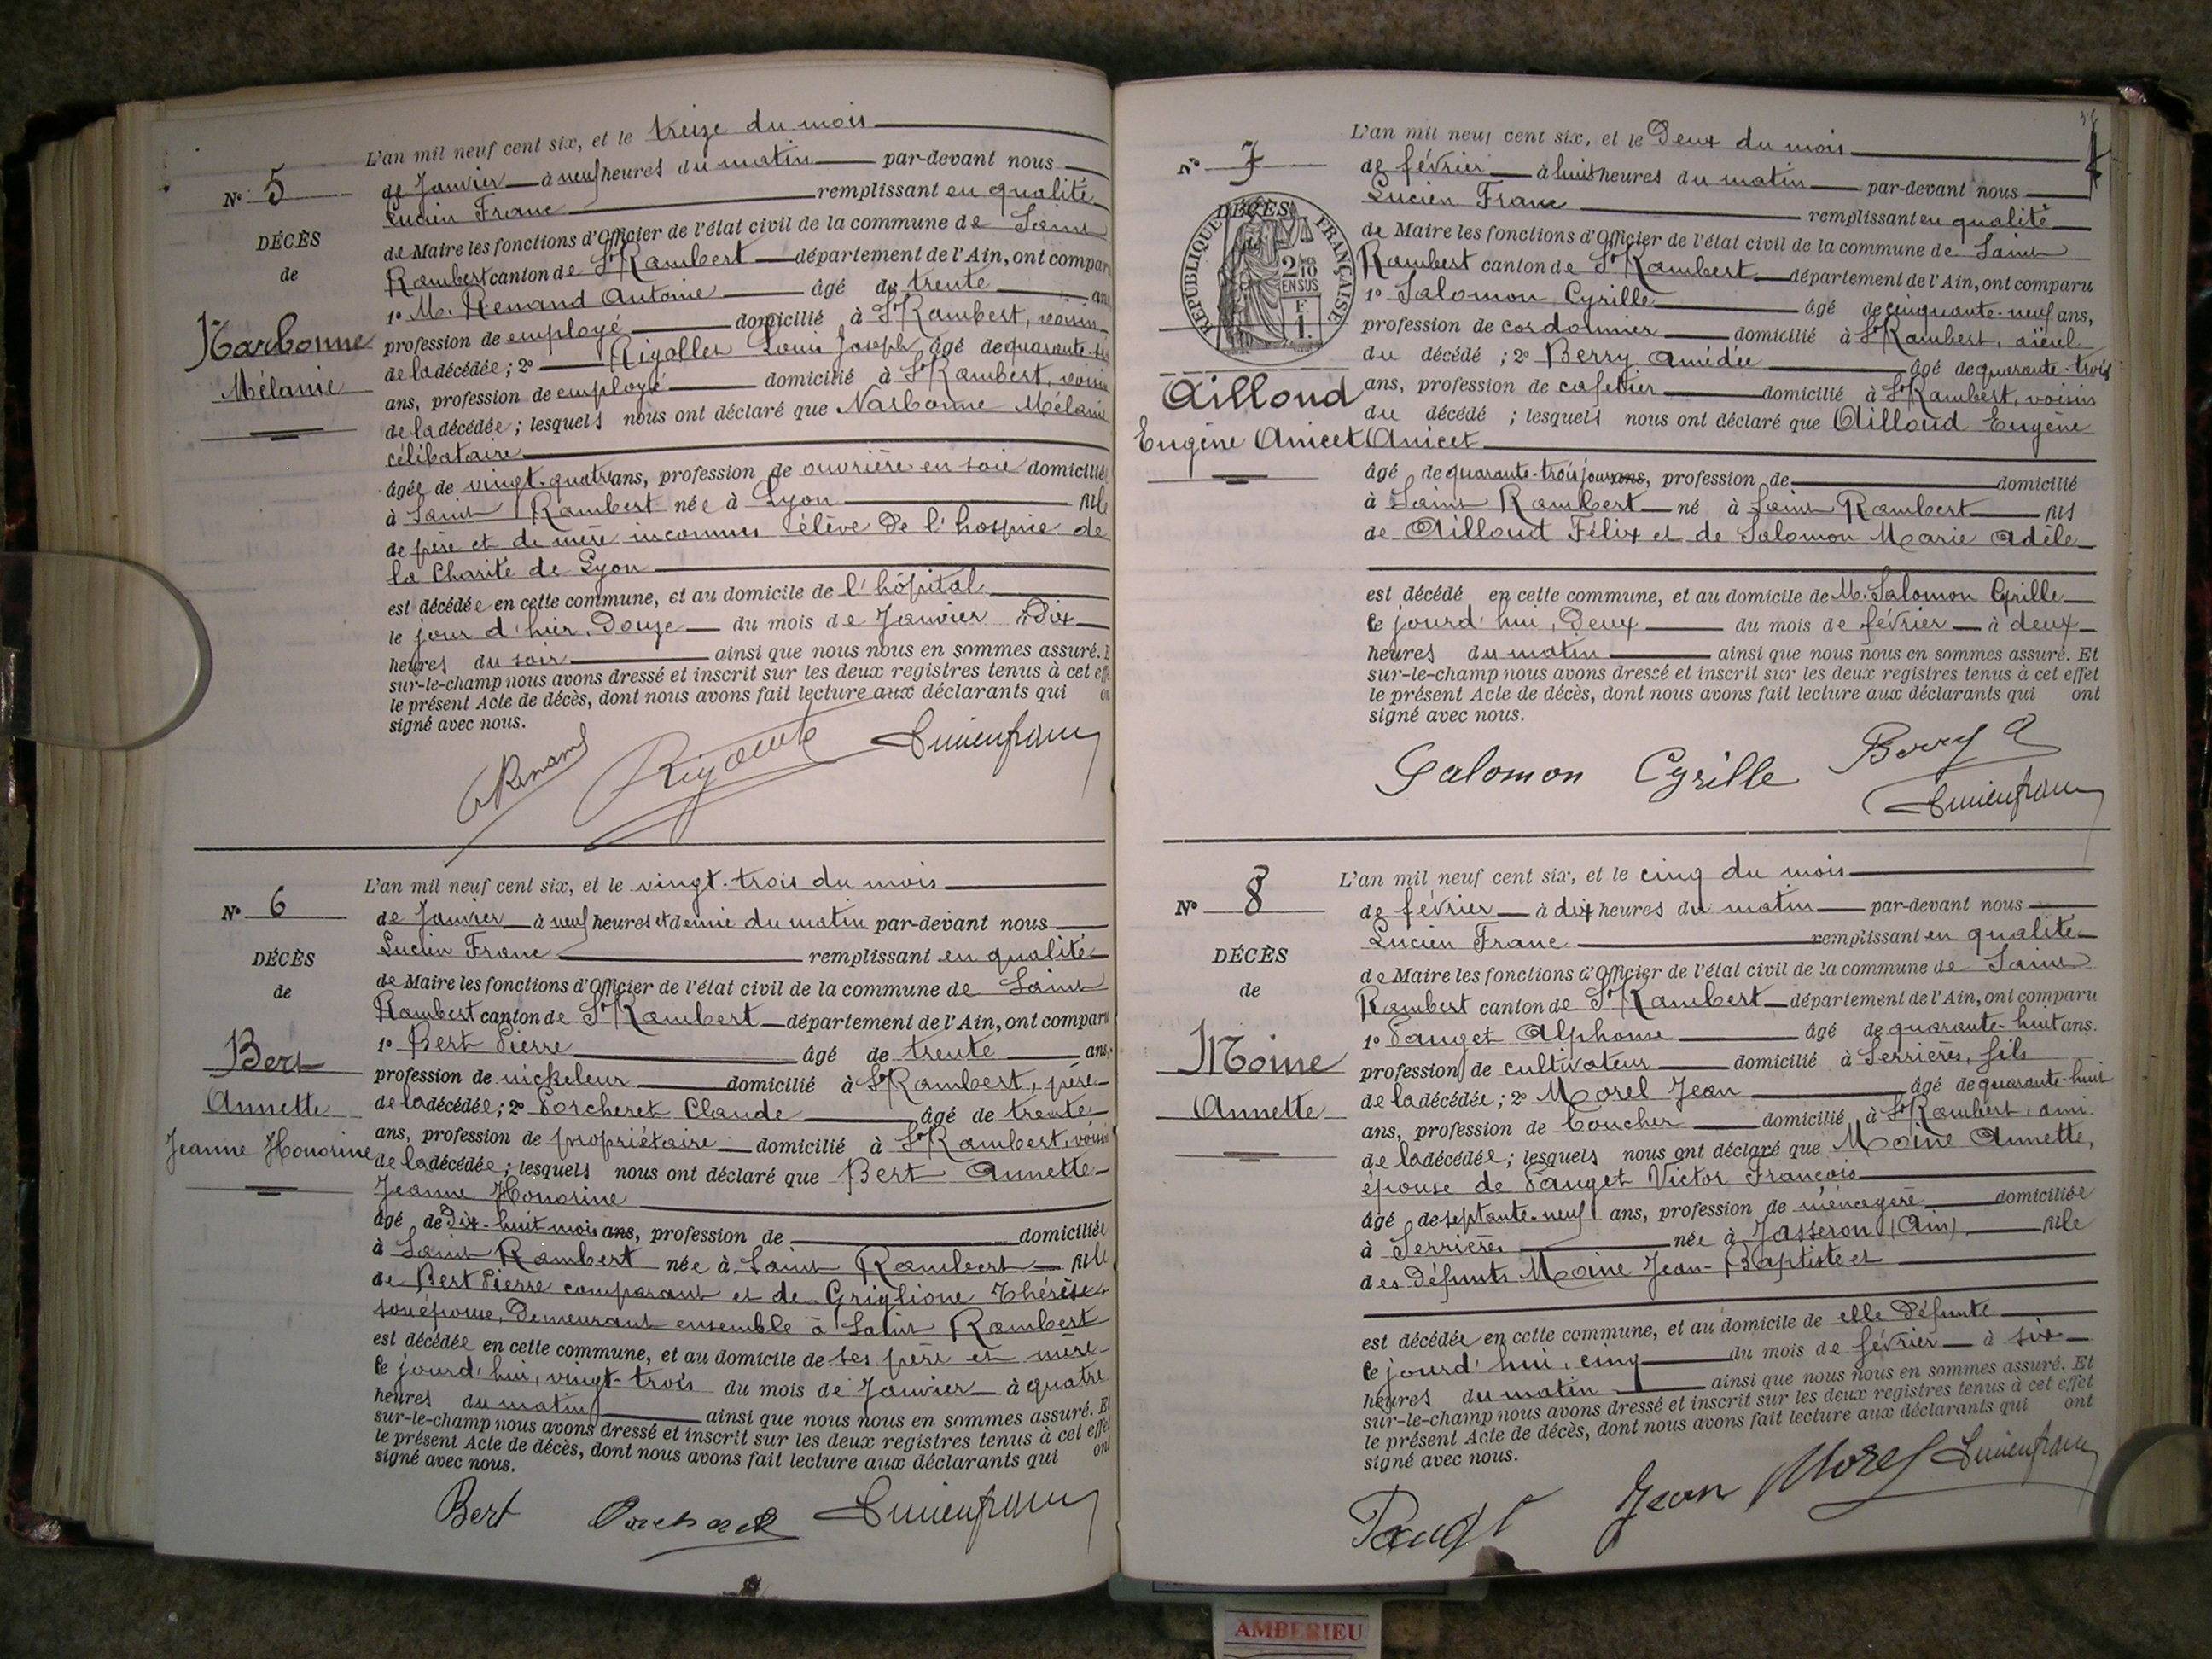 L'an mil neuf cent six, et le treize du mois
N° 5
de Janvier à neuf heures du matin par-devant nous
Lucien Franc remplissant en qualité
DÉCÈS
de Maire les fonctions d'Officier de l'état civil de la commune de Saint
de
Rambert canton de St Rambert département de l'Ain, ont compar
1° M. Renand Antoine âgé de trente ans
Narbonne
profession de employé domicilié à St Rambert, voisin
Mélanie
de la décédée; 2° Louis Joseph âgé de quarante-six
ans, profession de employé domicilié à St Rambert, voisin
de la décédée; lesquels nous ont déclaré que Narbonne Mélanie
célibataire
âgée de vingt-quatre ans, profession de ouvrière en soie domiciliée
à Saint Rambert née à Lyon fille
de père et de mère inconnus élève de l'hospice de
la Charité de Lyon
est décédée en cette commune, et au domicile de l'hôpital
le jour d'hier, Douze du mois de Janvier à Dix
heures du soir ainsi que nous nous en sommes assuré. E
sur-le-champ nous avons dressé et inscrit sur les deux registres tenus à cet eff
le présent Acte de décès, dont nous avons fait lecture aux déclarants qui on
signé avec nous.
L'an mil neuf cent six, et le vingt-trois du mois
N° 6
de Janvier à neuf heures et demie du matin par-devant nous
Lucien Franc remplissant en qualité
DÉCÈS
de Maire les fonctions d'Officier de l'état civil de la commune de Saint
de
Rambert canton de St Rambert département de l'Ain, ont comparu
1° Bert Pierre âgé de trente ans,
Bert
profession de nickeleur domicilié à St Rambert, père
Annette
de la décédée; 2° Porcheret Claude âgé de trente
ans, profession de propriétaire domicilié à St Rambert, voisin
Jeanne Honorine
de la décédée; lesquels nous ont déclaré que Bert Annette
Jeanne Honorine
âgé de Dix-huit mois ans, profession de domiciliée
à Saint Rambert née à Saint Rambert fille
de Bert Pierre comparant et de Griglione Thérèse
son épouse, Demeurant ensemble à Saint Rambert
est décédée en cette commune, et au domicile de ses père et mère
le jourd'hui, vingt-trois du mois de Janvier à quatre
heures du matin ainsi que nous nous en sommes assuré. Et
sur-le-champ nous avons dressé et inscrit sur les deux registres tenus à cet effet
le présent Acte de décès, dont nous avons fait lecture aux déclarants qui ont
signé avec nous.
Bert
L'an mil neuf cent six, et le Deux du mois
N° 7
de février à huit heures du matin par-devant nous
Lucien Franc remplissant en qualité
DÉCÈS
RÉPUBLIQUE FRANÇAISE
2/10 EN SUS
de Maire les fonctions d'Officier de l'état civil de la commune de Saint
Rambert canton de St Rambert département de l'Ain, ont comparu
1° Salomon Cyrille âgé de cinquante-neuf ans,
profession de cordonnier domicilié à St Rambert, aïeul
du décédé; 2° Berry Amédée âgé de quarante-trois
Ailloud
ans, profession de cafetier domicilié à St Rambert, voisin
du décédé; lesquels nous ont déclaré que Ailloud Eugène
Eugène Anicet
Anicet
âgé de quarante-trois jours ans, profession de domicilié
à Saint Rambert né à Saint Rambert fils
de Ailloud Félix et de Salomon Marie Adèle
est décédé en cette commune, et au domicile de M. Salomon Cyrille
le jourd'hui, Deux du mois de février à deux
heures du matin ainsi que nous nous en sommes assuré. Et
sur-le-champ nous avons dressé et inscrit sur les deux registres tenus à cet effet
le présent Acte de décès, dont nous avons fait lecture aux déclarants qui ont
signé avec nous.
Salomon Cyrille Berry A
L'an mil neuf cent six, et le cinq du mois
N° 8
de février à dix heures du matin par-devant nous
Lucien Franc remplissant en qualité
DÉCÈS
de Maire les fonctions d'Officier de l'état civil de la commune de Saint
de
Rambert canton de St Rambert département de l'Ain, ont comparu
1° Pauget Alphonse âgé de quarante-huit ans.
Moine
profession de cultivateur domicilié à Serrières, fils
de la décédée; 2° Morel Jean âgé de quarante-huit
Annette
ans, profession de boucher domicilié à St Rambert, ami
de la décédée; lesquels nous ont déclaré que Moine Annette,
épouse de Pauget Victor François
âgé de septante-neuf ans, profession de ménagère domiciliée
à Serrières née à Jasseron (Ain) fille
des défunts Moine Jean-Baptiste et
est décédée en cette commune, et au domicile de elle défunte
le jourd'hui, cinq du mois de février à six
heures du matin ainsi que nous nous en sommes assuré. Et
sur-le-champ nous avons dressé et inscrit sur les deux registres tenus à cet effet
le présent Acte de décès, dont nous avons fait lecture aux déclarants qui ont
signé avec nous.
Jean Morel
AMBERIEU